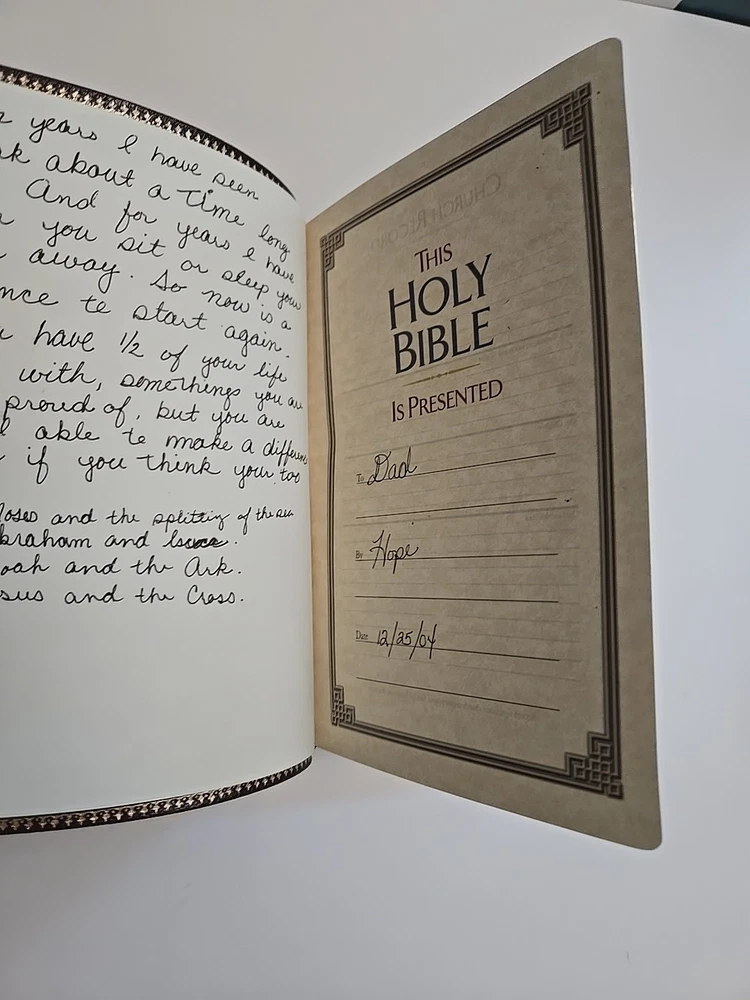 years I have seen
about a time long
And for years I have
you sit or sleep your
away. So now is a
te start again.
have 1/2 of your life
with, somethings you are
proud of, but you are
able te make a difference
if you think your too
and the splitting of the sea
and
and the Ark.
and the Cross.
CHURCH RECORD
THIS
HOLY
BIBLE
IS PRESENTED
To Dad
By Hope
Date 12/25/04